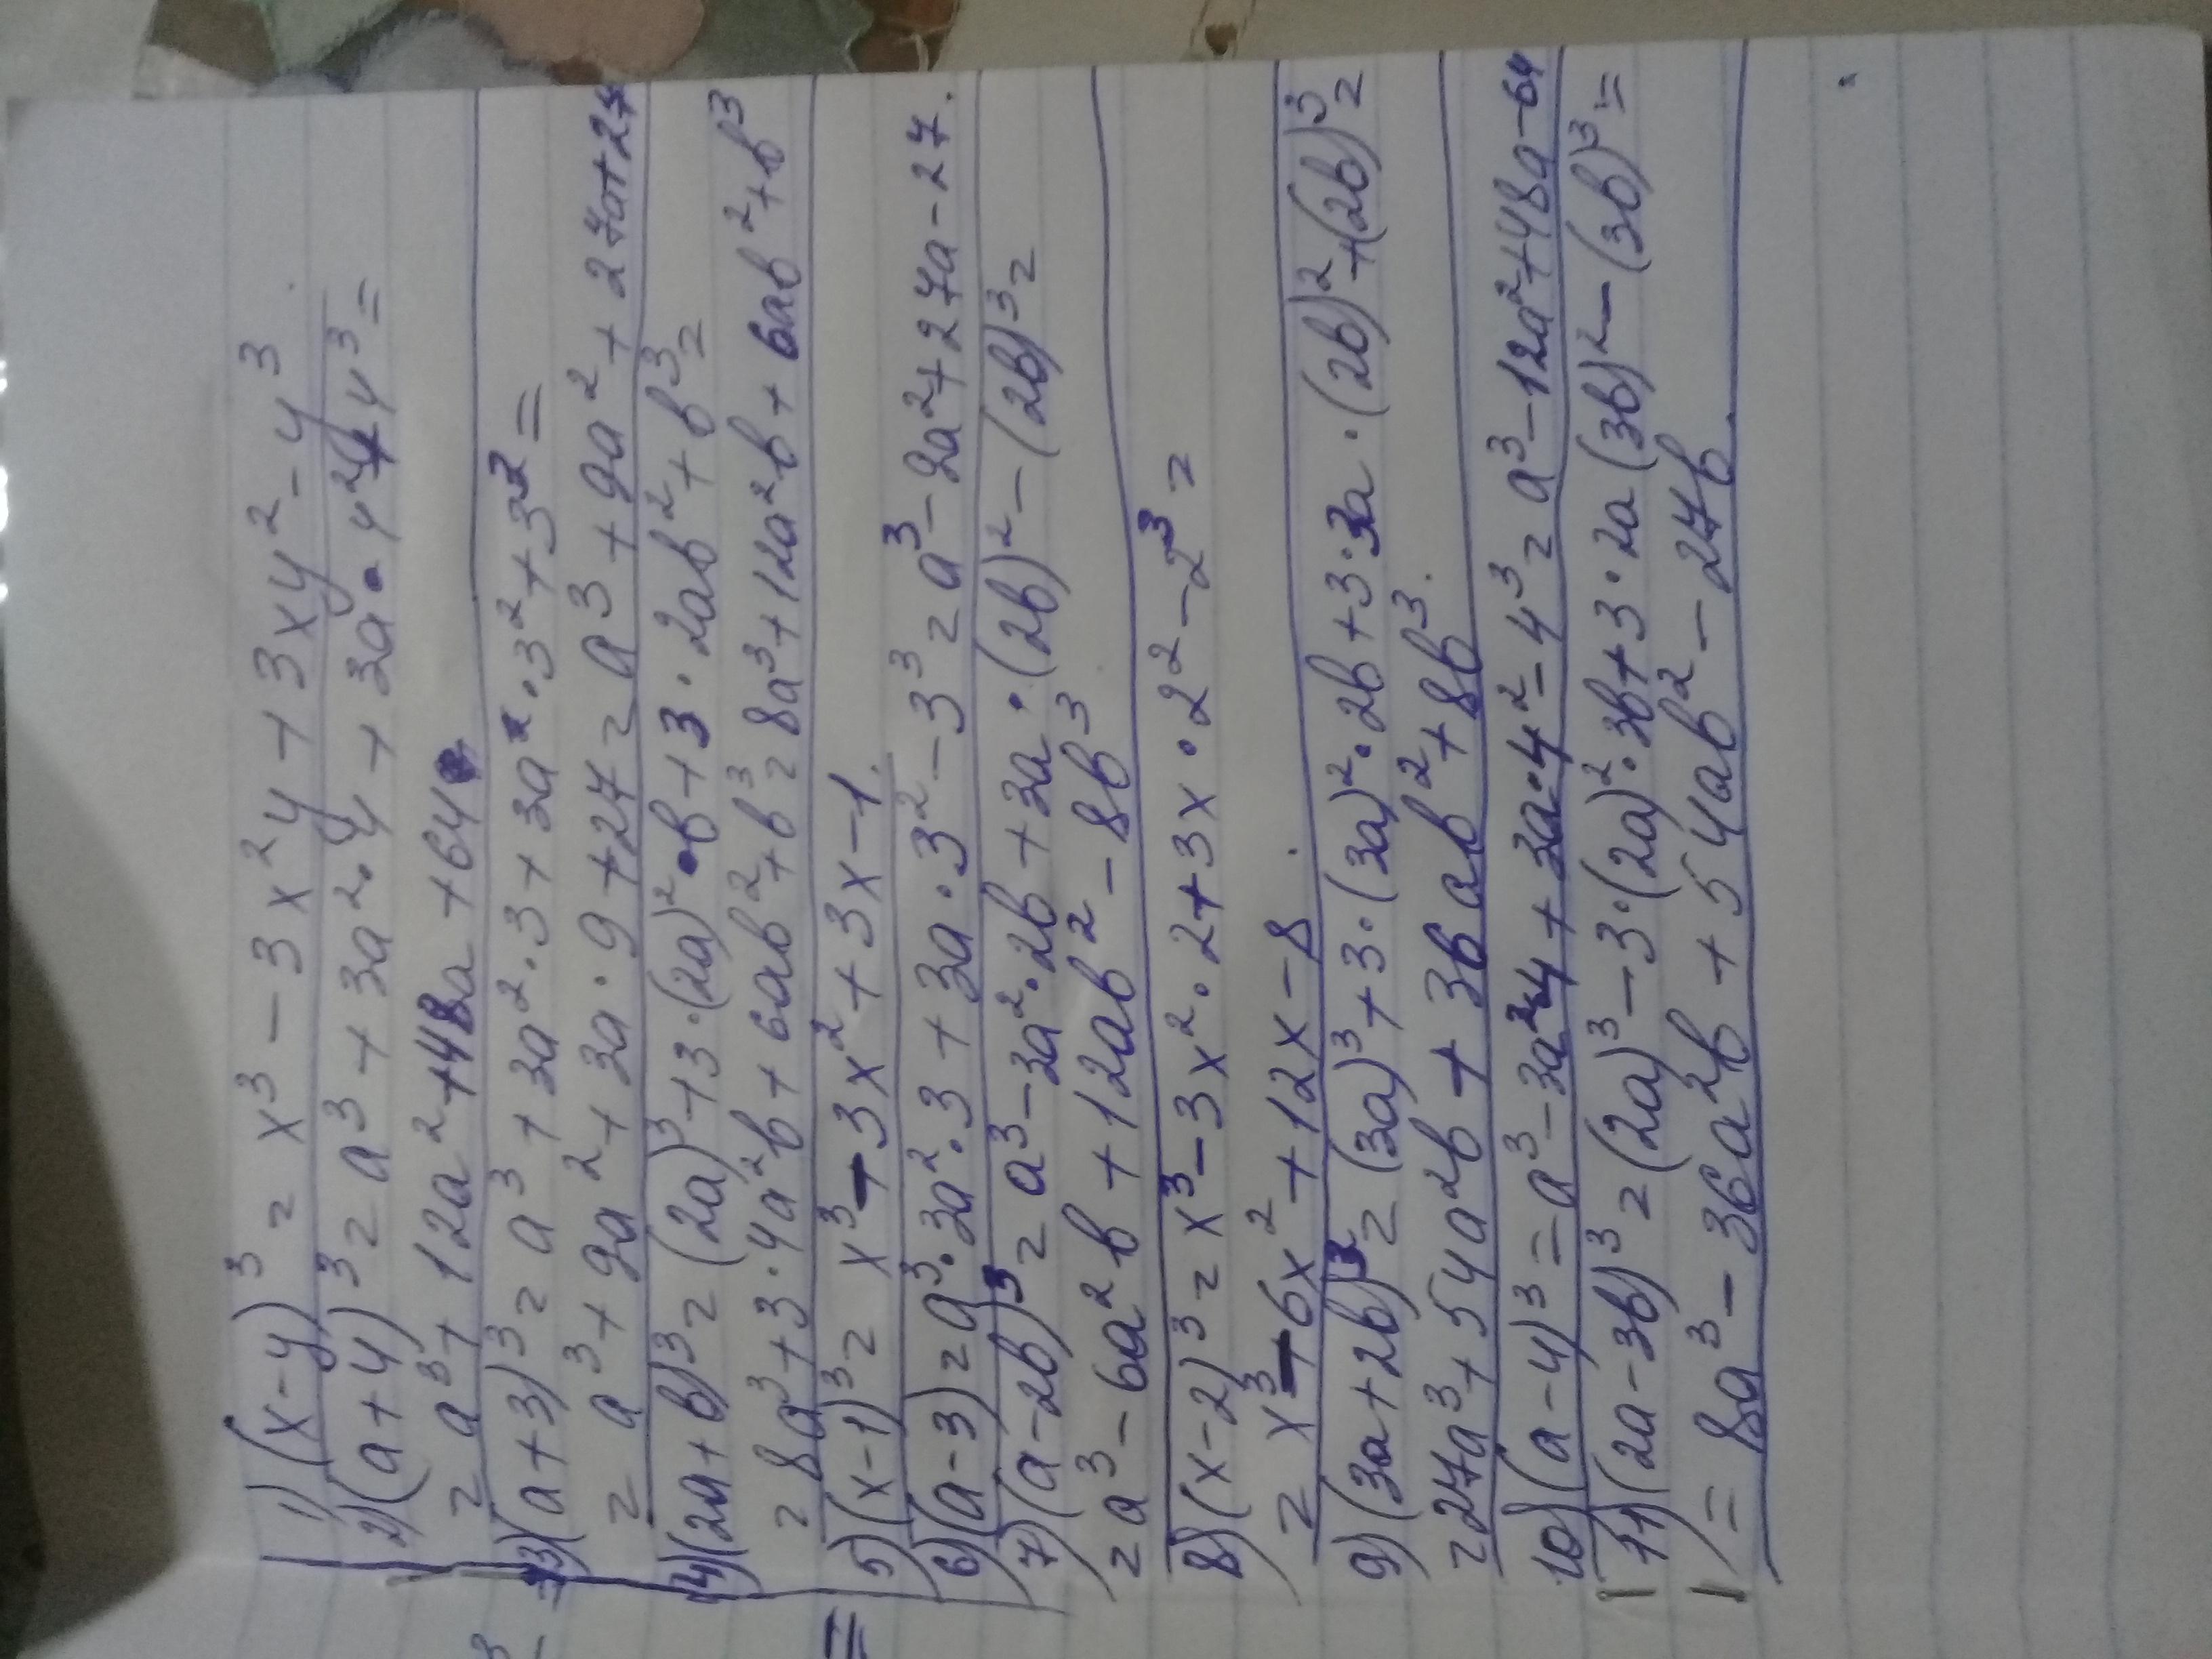 1) (x-y)³ = x³ - 3x²y + 3xy² - y³
2) (a+4)³ = a³ + 3a²·4 + 3a·4² + 4³ =
= a³ + 12a² + 48a + 64
3) (a+3)³ = a³ + 3a²·3 + 3a·3² + 3³ =
= a³ + 9a² + 3a·9 + 27 = a³ + 9a² + 27a + 27
4) (2a+b)³ = (2a)³ + 3·(2a)²·b + 3·2ab² + b³ =
= 8a³ + 3·4a²b + 6ab² + b³ = 8a³ + 12a²b + 6ab² + b³
5) (x-1)³ = x³ - 3x² + 3x - 1.
6) (a-3) = a³·3a²·3 + 3a·3² - 3³ = a³ - 9a² + 27a - 27.
7) (a-2b)³ = a³ - 3a²·2b + 3a·(2b)² - (2b)³ =
= a³ - 6a²b + 12ab² - 8b³
8) (x-2)³ = x³ - 3x²·2 + 3x·2² - 2³ =
= x³ - 6x² + 12x - 8.
9) (3a+2b)³ = (3a)³ + 3·(3a)²·2b + 3·3a·(2b)² + (2b)³ =
= 27a³ + 54a²b + 36ab² + 8b³.
10) (a-4)³ = a³ - 3a²4 + 3a·4² - 4³ = a³ - 12a² + 48a - 64
11) (2a-3b)³ = (2a)³ - 3·(2a)²·3b + 3·2a(3b)² - (3b)³ =
= 8a³ - 36a²b + 54ab² - 27b.